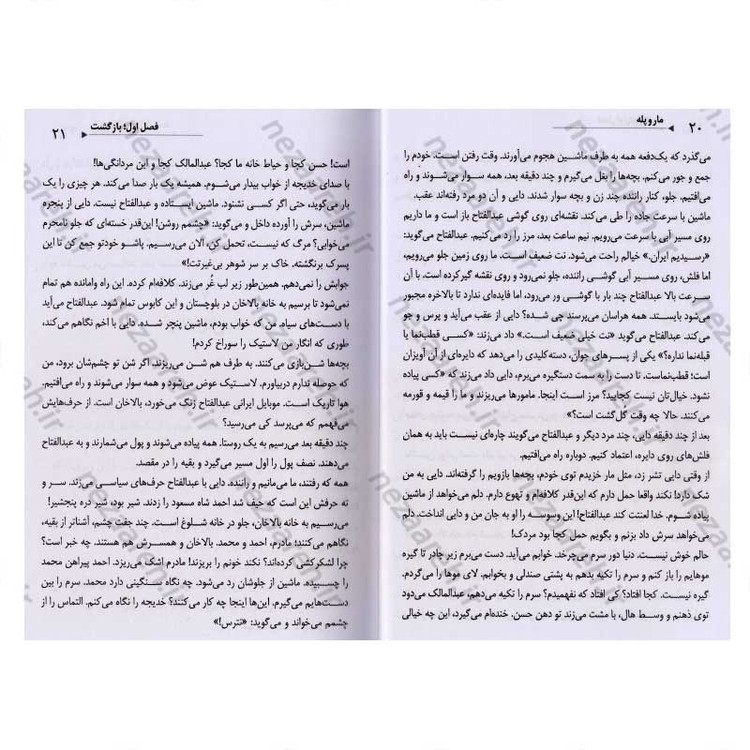 ۲۰ مار و پله
می‌گذرد که یک‌دفعه همه به طرف ماشین هجوم می‌آورند. وقت رفتن است. خودم را
جمع و جور می‌کنم. بچه‌ها را بغل می‌گیرم و چند دقیقه بعد، همه سوار می‌شوند و راه
می‌افتیم. جلو، کنار راننده چند زن و بچه سوار شدند. دایی و آن دو مرد رفته‌اند عقب.
ماشین با سرعت جاده را طی می‌کند. نقشه‌ای روی گوشی عبدالفتاح باز است و ما داریم
روی مسیر آبی با سرعت می‌رویم. نیم ساعت بعد، مرز را رد می‌کنیم. عبدالفتاح می‌گوید:
«رسیدیم ایران.» خیالم راحت می‌شود. نت ضعیف است. ما روی زمین جلو می‌رویم،
اما فلش، روی مسیر آبی گوشی راننده، جلو نمی‌رود و روی نقشه گیر کرده است. با آن
سرعت بالا عبدالفتاح چند بار با گوشی ور می‌رود، اما فایده‌ای ندارد تا بالاخره مجبور
می‌شود بایستد. همه هراسان می‌پرسند چی شده؟ دایی از عقب می‌آید و پرس و جو
می‌کند. عبدالفتاح می‌گوید «نت خیلی ضعیف است.» داد می‌زند: «کسی قطب‌نما یا
قبله‌نما نداره؟» یکی از پسرهای جوان، دسته‌کلیدی را می‌دهد که دایره‌ای از آن آویزان
است؛ قطب‌نماست. تا دست را به سمت دستگیره می‌برم، دایی داد می‌کند: «کی پیاده
نشود. خیال‌تان نیست کجایید؟ مرز است اینجا. مامورها می‌ریزند و ما را قیمه و قورمه
می‌کنند. حالا چه وقت گل‌گشت است؟»
بعد از چند دقیقه دایی، چند مرد دیگر و عبدالفتاح می‌گویند چاره‌ای نیست باید به همان
فلش‌های روی دایره، اعتماد کنیم. دوباره راه می‌افتیم.
از وقتی دایی تشر زد، مثل مار خزیدم توی خودم، بچه‌ها بازویم را گرفته‌اند. دایی به من
شک دارد! نکند واقعا حمل دارم که این‌قدر کلافه‌ام و تهوع دارم. دلم می‌خواهد از ماشین
پیاده شوم. خدا لعنتت کند عبدالفتاح! این وسوسه را او به جان من و دایی انداخت. دلم
می‌خواهد سرش داد بزنم و بگویم حمل کجا بود مردک!
حالم خوش نیست. دنیا دور سرم می‌چرخد. خوابم می‌آید. دست می‌برم زیر چادر تا گیره
موهایم را باز کنم و سرم را تکیه بدهم به پشتی صندلی و بخوابم. لای موها را می‌گردم.
گیره نیست. کجا افتاد؟ کی افتاد که نفهمیدم؟ سرم را تکیه می‌دهم، عبدالمالک می‌دود
توی ذهنم و وسط هال، با مشت می‌زند تو دهن حسن. خنده‌ام می‌گیرد، این چه خیالی
فصل اول؛ بازگشت ۲۱
است! حسن کجا و حیاط خانه ما کجا؟ عبدالمالک کجا و این مردانگی‌ها!
با صدای خدیجه از خواب بیدار می‌شوم. همیشه یک بار صدا می‌کند. هر چیزی را یک
بار می‌گوید، حتی اگر کسی نشنود. ماشین ایستاده و عبدالفتاح نیست. دایی از پنجره
ماشین، سرش را آورده داخل و می‌گوید: «چشمم روشن! این‌قدر خسته‌ای که جلو نامحرم
می‌خوابی؟ مرگ که نیست، تحمل کن، الان می‌رسیم. پاشو خودتو جمع کن تا این
پسرک برنگشته. خاک بر سر شوهر بی‌غیرتت!»
جوابش را نمی‌دهم. همین‌طور زیر لب غُر می‌زند. کلافه‌ام کرده. این راه وامانده هم تمام
نمی‌شود تا برسیم به خانه بالاخان در بلوچستان و این کابوس تمام شود. عبدالفتاح می‌آید
با دست‌های سیاه. من که خواب بودم، ماشین پنچر شده. دایی با اخم نگاهم می‌کند،
طوری که انگار من لاستیک را سوراخ کردم!
بچه‌ها شن‌بازی می‌کنند. به طرف هم شن می‌ریزند. اگر شن تو چشم‌شان برود، من
که حوصله ندارم دربیاورم. لاستیک عوض می‌شود و همه سوار می‌شوند و راه می‌افتیم.
هوا تاریک است. موبایل ایرانی عبدالفتاح زنگ می‌خورد، بالاخان است. از حرف‌هایش
می‌فهمم که می‌پرسد کی می‌رسید؟
چند دقیقه بعد می‌رسیم به یک روستا. همه پیاده می‌شوند و پول می‌شمارند و به عبدالفتاح
می‌دهند. نصف پول را اول مسیر می‌گیرد و بقیه را در مقصد.
همه که رفتند، ما می‌مانیم و راننده. دایی با عبدالفتاح حرف‌های سیاسی می‌زند. سر و
ته حرفش این است که حیف شد احمد شاه مسعود را زدند. شیر بود، شیر دره پنجشیر!
می‌رسیم به خانه بالاخان، جلو در خانه شلوغ است. چند جفت چشم، آشناتر از بقیه،
نگاهم می‌کنند؛ مادرم، احمد و محمد. بالاخان و همسرش هم هستند. چه خبر است؟
چرا لشکرکشی کرده‌اند؟ نکند خونم را بریزند! مادرم اشک می‌ریزد. احمد پیراهن محمد
را چسبیده. ماشین از جلوشان رد می‌شود. چه نگاه سنگینی دارد محمد. سرم را بین
دست‌هایم می‌گیرم. این‌ها اینجا چه کار می‌کنند؟ خدیجه را نگاه می‌کنم. التماس را از
چشمم می‌خواند و می‌گوید: «نترس!»
nezaareh.ir